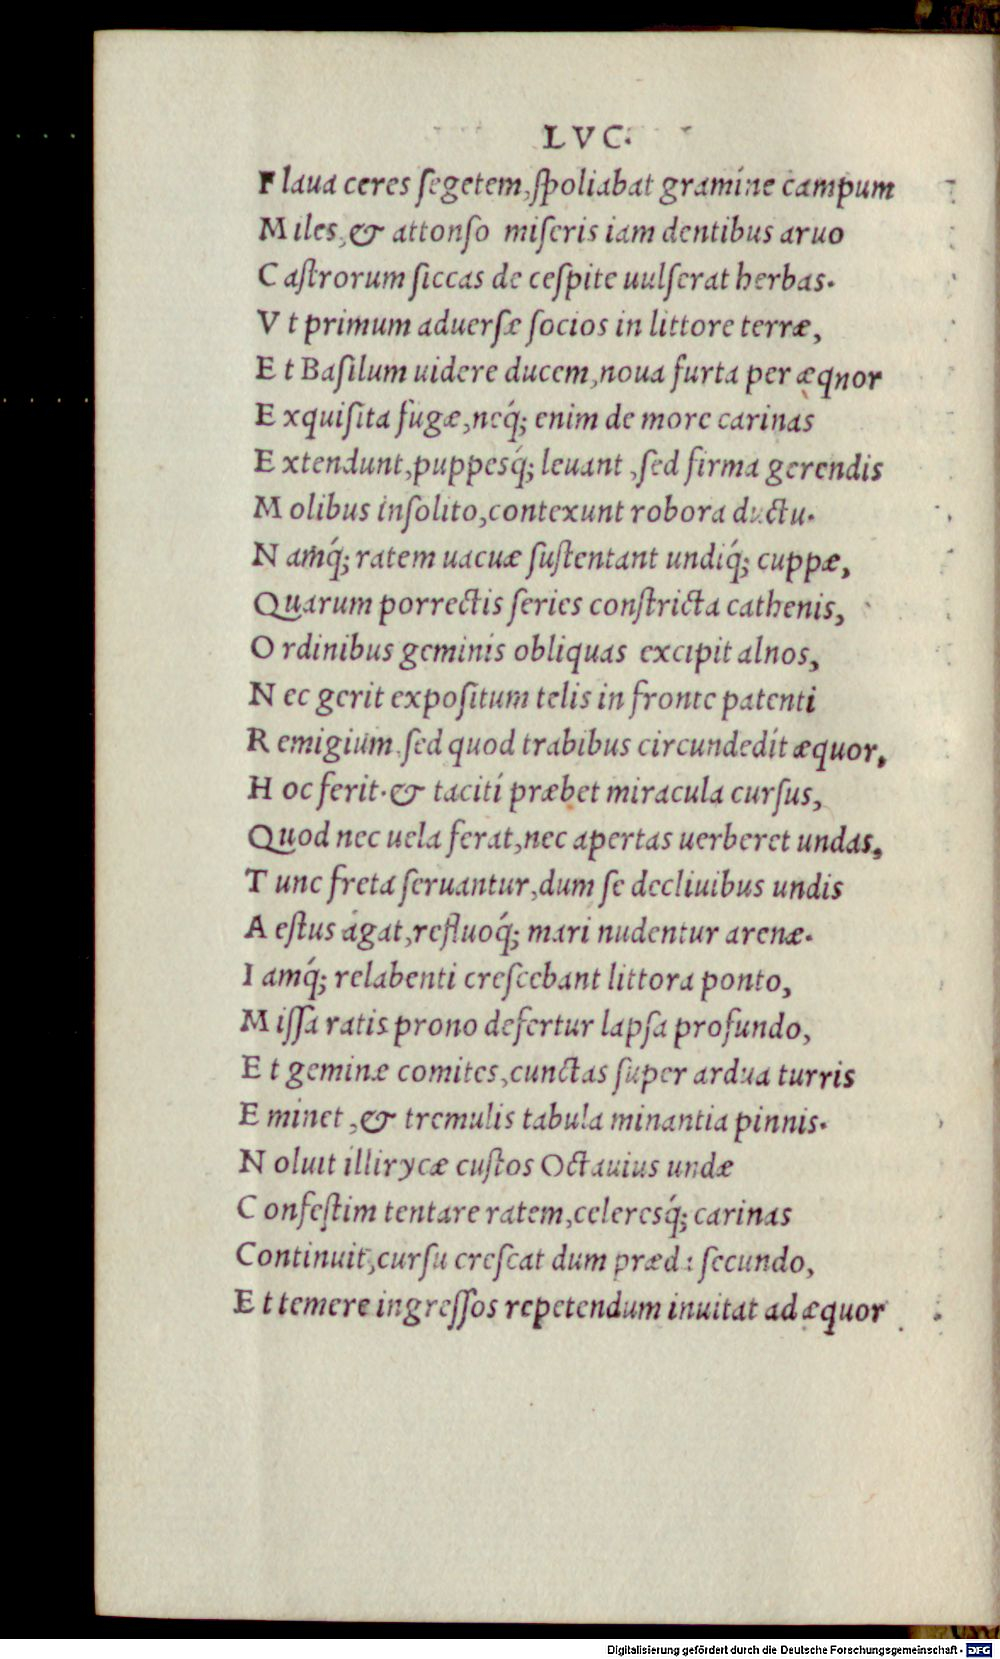 LVC.
F laua ceres ſegetem,ſpoliabat gramine campum
M iles,& attonſo miſeris iam dentibus aruo
C aſtrorum ſiccas de ceſpite uulſerat herbas.
V t primum aduerſæ ſocios in littore terræ,
E t Baſilum uidere ducem,noua furta per æqnor
E xquiſita fugæ,neq́; enim de more carinas
E xtendunt,puppesq́; leuant ,ſed firma gerendis
M olibus inſolito,contexunt robora ductu.
N amq́; ratem uacuæ ſuſtentant undiq́; cuppæ,
Quarum porrectis ſeries conſtricta cathenis,
O rdinibus geminis obliquas excipit alnos,
N ec gerit expoſitum telis in fronte patenti
R emigium.ſed quod trabibus circundedit æquor,
H oc ferit.& taciti præbet miracula curſus,
Quod nec uela ferat,nec apertas uerberet undas,
T unc freta ſeruantur,dum ſe decliuibus undis
A eſtus agat,refluoq́; mari nudentur arenæ.
I amq́; relabenti creſcebant littora ponto,
M iſſa ratis prono defertur lapſa profundo,
E t geminæ comites,cunctas ſuper ardua turris
E minet ,& tremulis tabula minantia pinnis.
N oluit illirycæ cuſtos Octauius undæ
C onfeſtim tentare ratem,celeresq́; carinas
Continuit,curſu creſcat dum præd: ſecundo,
E t temere ingreſſos repetendum inuitat ad æquor
Digitalisierung gefördert durch die Deutsche Forschungsgemeinschaft - DFG